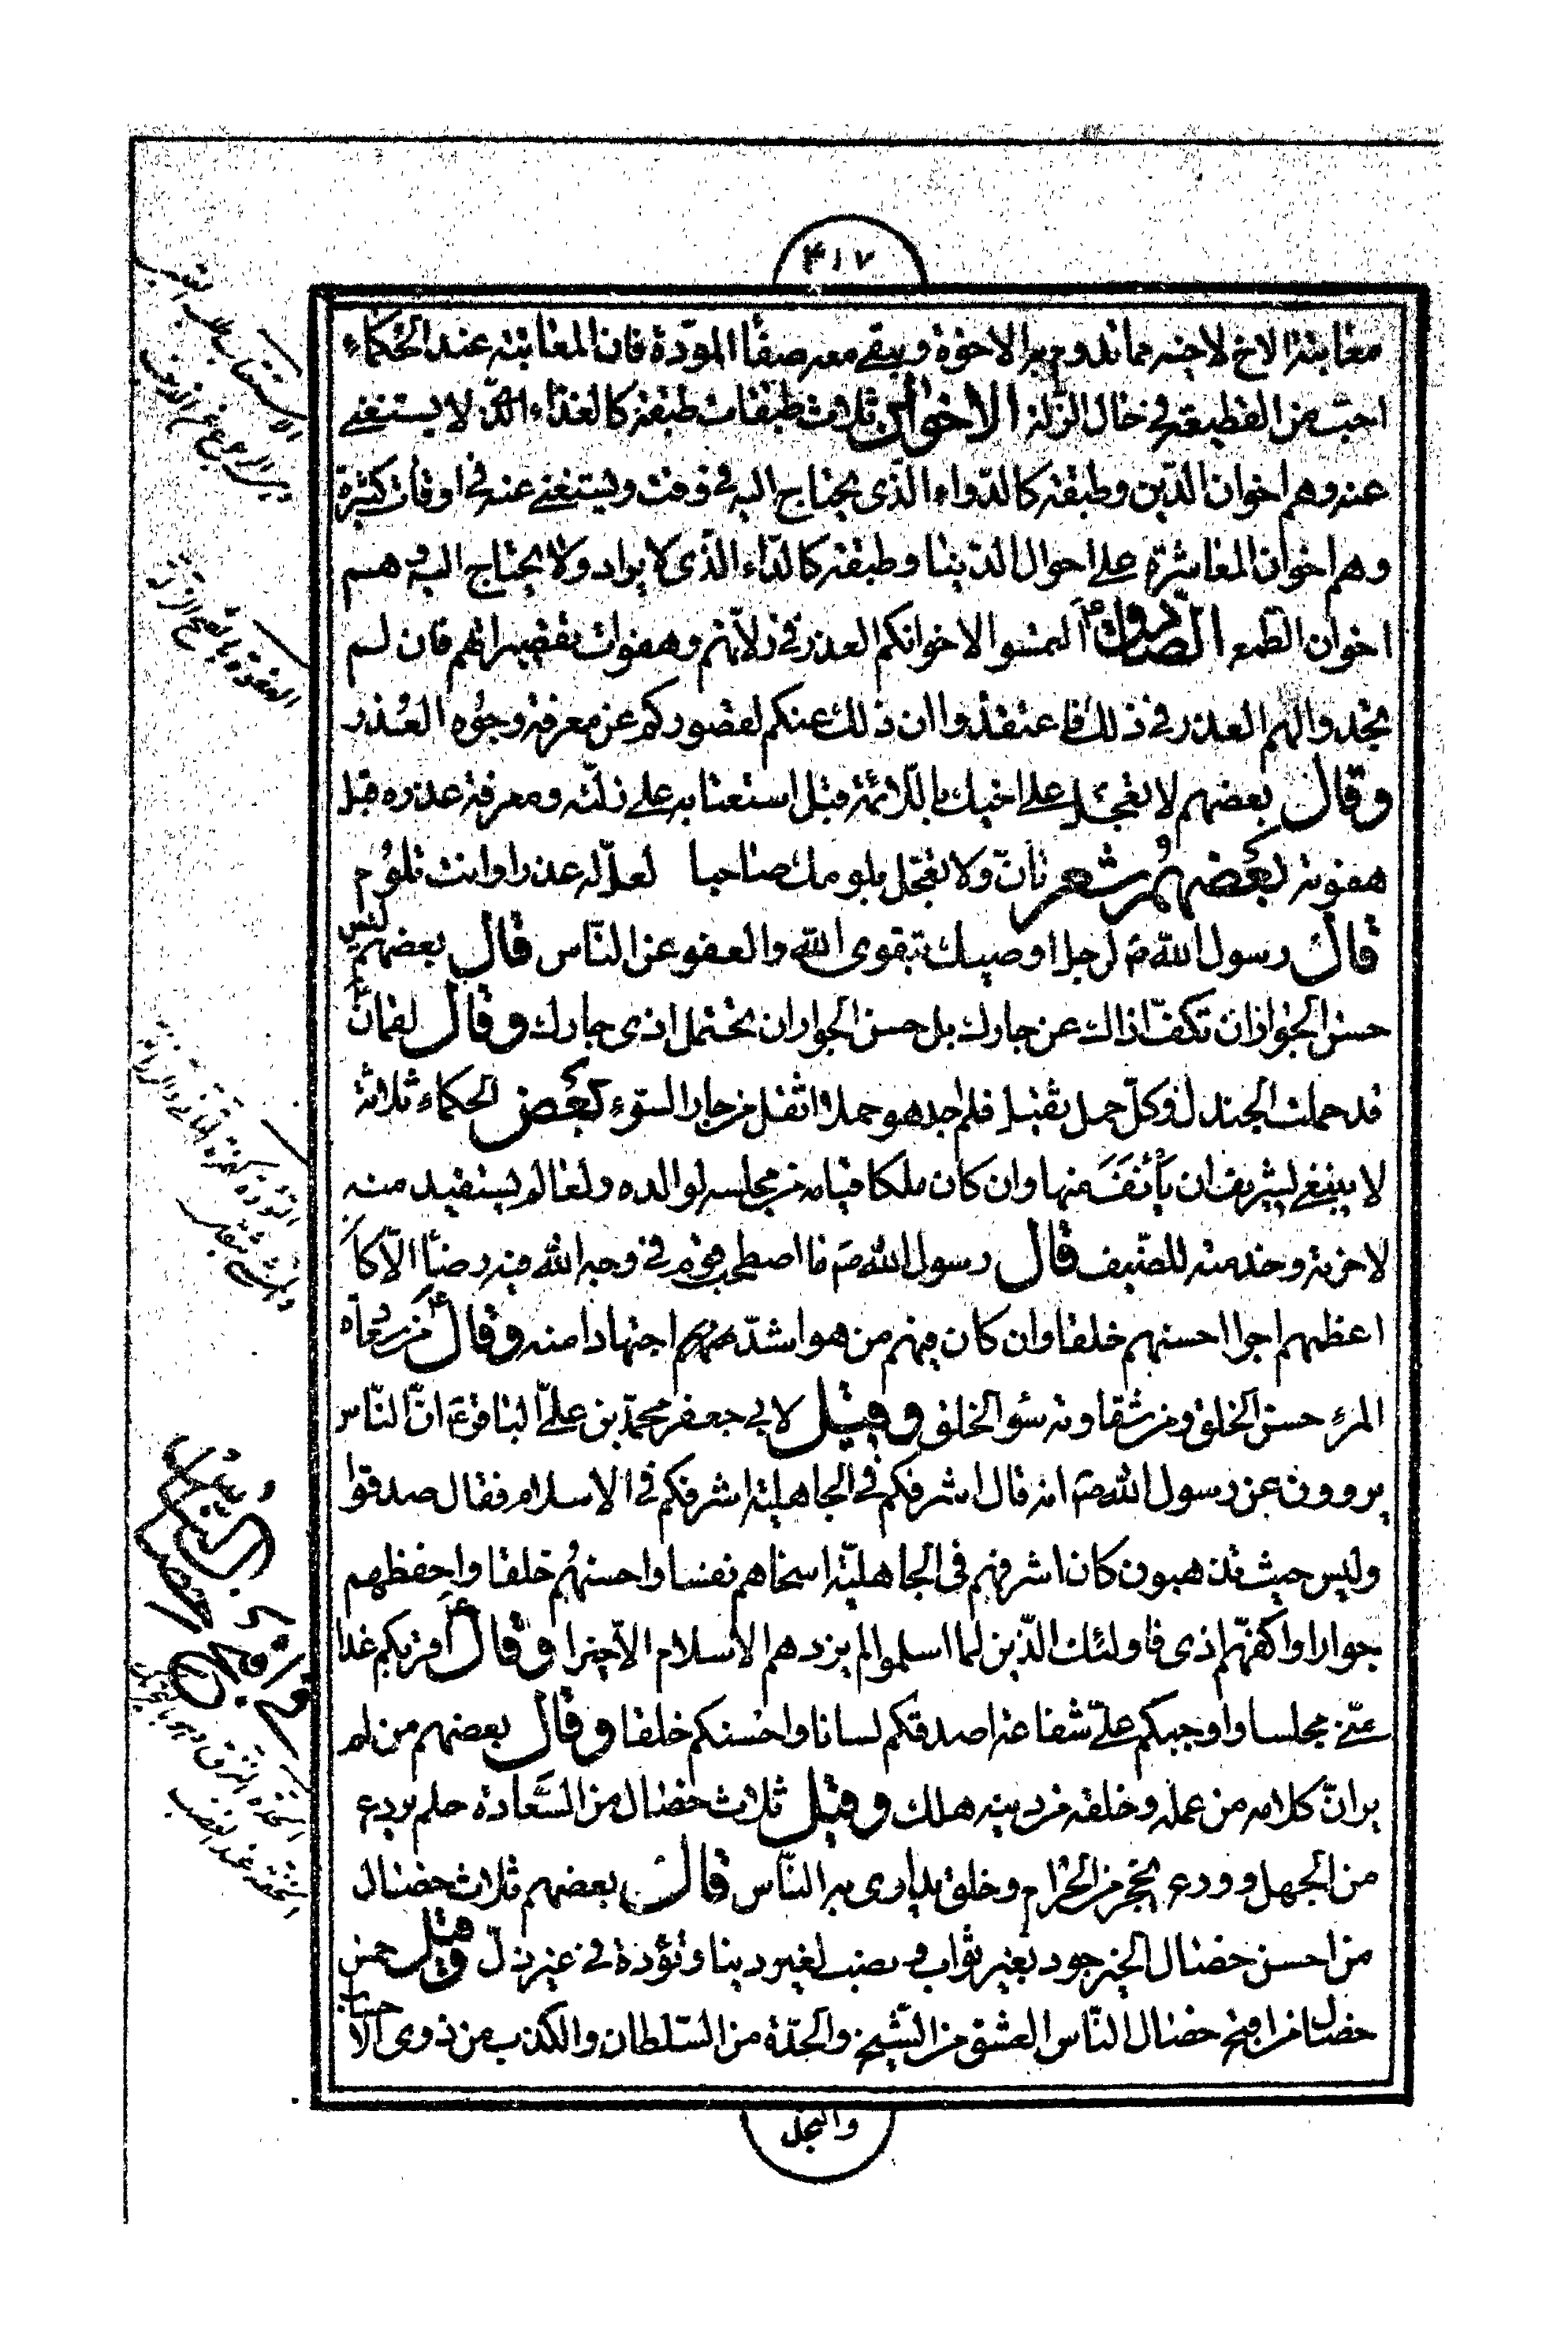 ۴۱۷
معاتبة الاخ لاخيه مما تدوم به الاخوة ويبقى معه صفاء المودّة فان المعاتبة عند الحكماء
احبّ من القطيعة في حال الزلة الاخوان ثلاث طبقات طبقة كالغذاء الذى لا يستغنى
عنه وهم اخوان الدّين وطبقة كالدّواء الذّى يحتاج اليه فى وقت ويستغنى عنه فى اوقات كثيرة
وهم اخوان المعاشرة على احوال الدّنيا وطبقة كالدّاء الذّى لا يراد ولا يحتاج اليه وهم
اخوان الطمع الصادق التمسوا لاخوانكم العذر فى زلاتهم وهفوات تقصيراتهم فان لم
تجدوا لهم العذر فى ذلك فاعتقدوا ان ذلك عنكم لقصوركم عن معرفة وجوه العُذر
وقال بعضهم لا تعجل على اخيك باللائمة قبل استعتابه على زلّته ومعرفة عذره قبل
هفوته لبعضهم شعر تأنّ ولا تعجّل بلومك صاحبا لعلّ له عذرا وانت تلوُم
قال رسول الله ص لرجل اوصيك بتقوى الله والعفو عن النّاس قال بعضهم ليس
حسن الجوار ان تكفّ اذاك عن جارك بل حسن الجوار ان تحتمل اذى جارك وقال لقمان
قد حملت الجندل وكلّ حمل ثقيل فلم اجد هو حملا اثقل من جار السّوء لبعض الحكماء ثلاثة
لا ينبغى لشريف ان يأنفَ منها وان كان ملكا قيامه من مجلسه لوالده ولعالم يستفيد منه
لاخرته وخدمته للضّيف قال رسول الله ص ما اصطحب قوم فى وجه الله فيه رضًا الّا كان
اعظمهم اجرا احسنهم خلقا وان كان فيهم من هو اشدّ منهم اجتهادا منه وقال من سعادة
المرء حسن الخلق ومن شقاوته سوء الخلق وقيل لابي جعفر محمّد بن علىّ الباقر ع انّ النّاس
يروون عن رسول الله ص انه قال اشرفكم فى الجاهلية اشرفكم فى الاسلام فقال صدقوا
وليس حيث تذهبون كان اشرفهم فى الجاهليّة اسخاهم نفسا واحسنهُم خلقا واحفظهم
جوارا واكفّهم اذى فاولئك الذّين لما اسلموا لم يزدهم الاسلام الّا خيرا وقال اقربكم غدا
منّى مجلسا واوجبكم علىّ شفاعة اصدقكم لسانا واحسنكم خلقا وقال بعضهم من لم
ير انّ كلامه من عمله وخلقه من دينه هلك وقيل ثلاث خصال من السَّعادة حلم يردع
من الجهل وورع يحجز من الحرام وخلق يدارى به النّاس قال بعضهم ثلاث خصال
من احسن خصال الخير جود بغير ثواب ونصب لغير دنيا وتؤدة فى غير ذلّ وقيل خمس
خصال من اقبح خصال النّاس العشق من الشّيخ والحدّة من السّلطان والكذب من ذوى الاحساب
والبخل